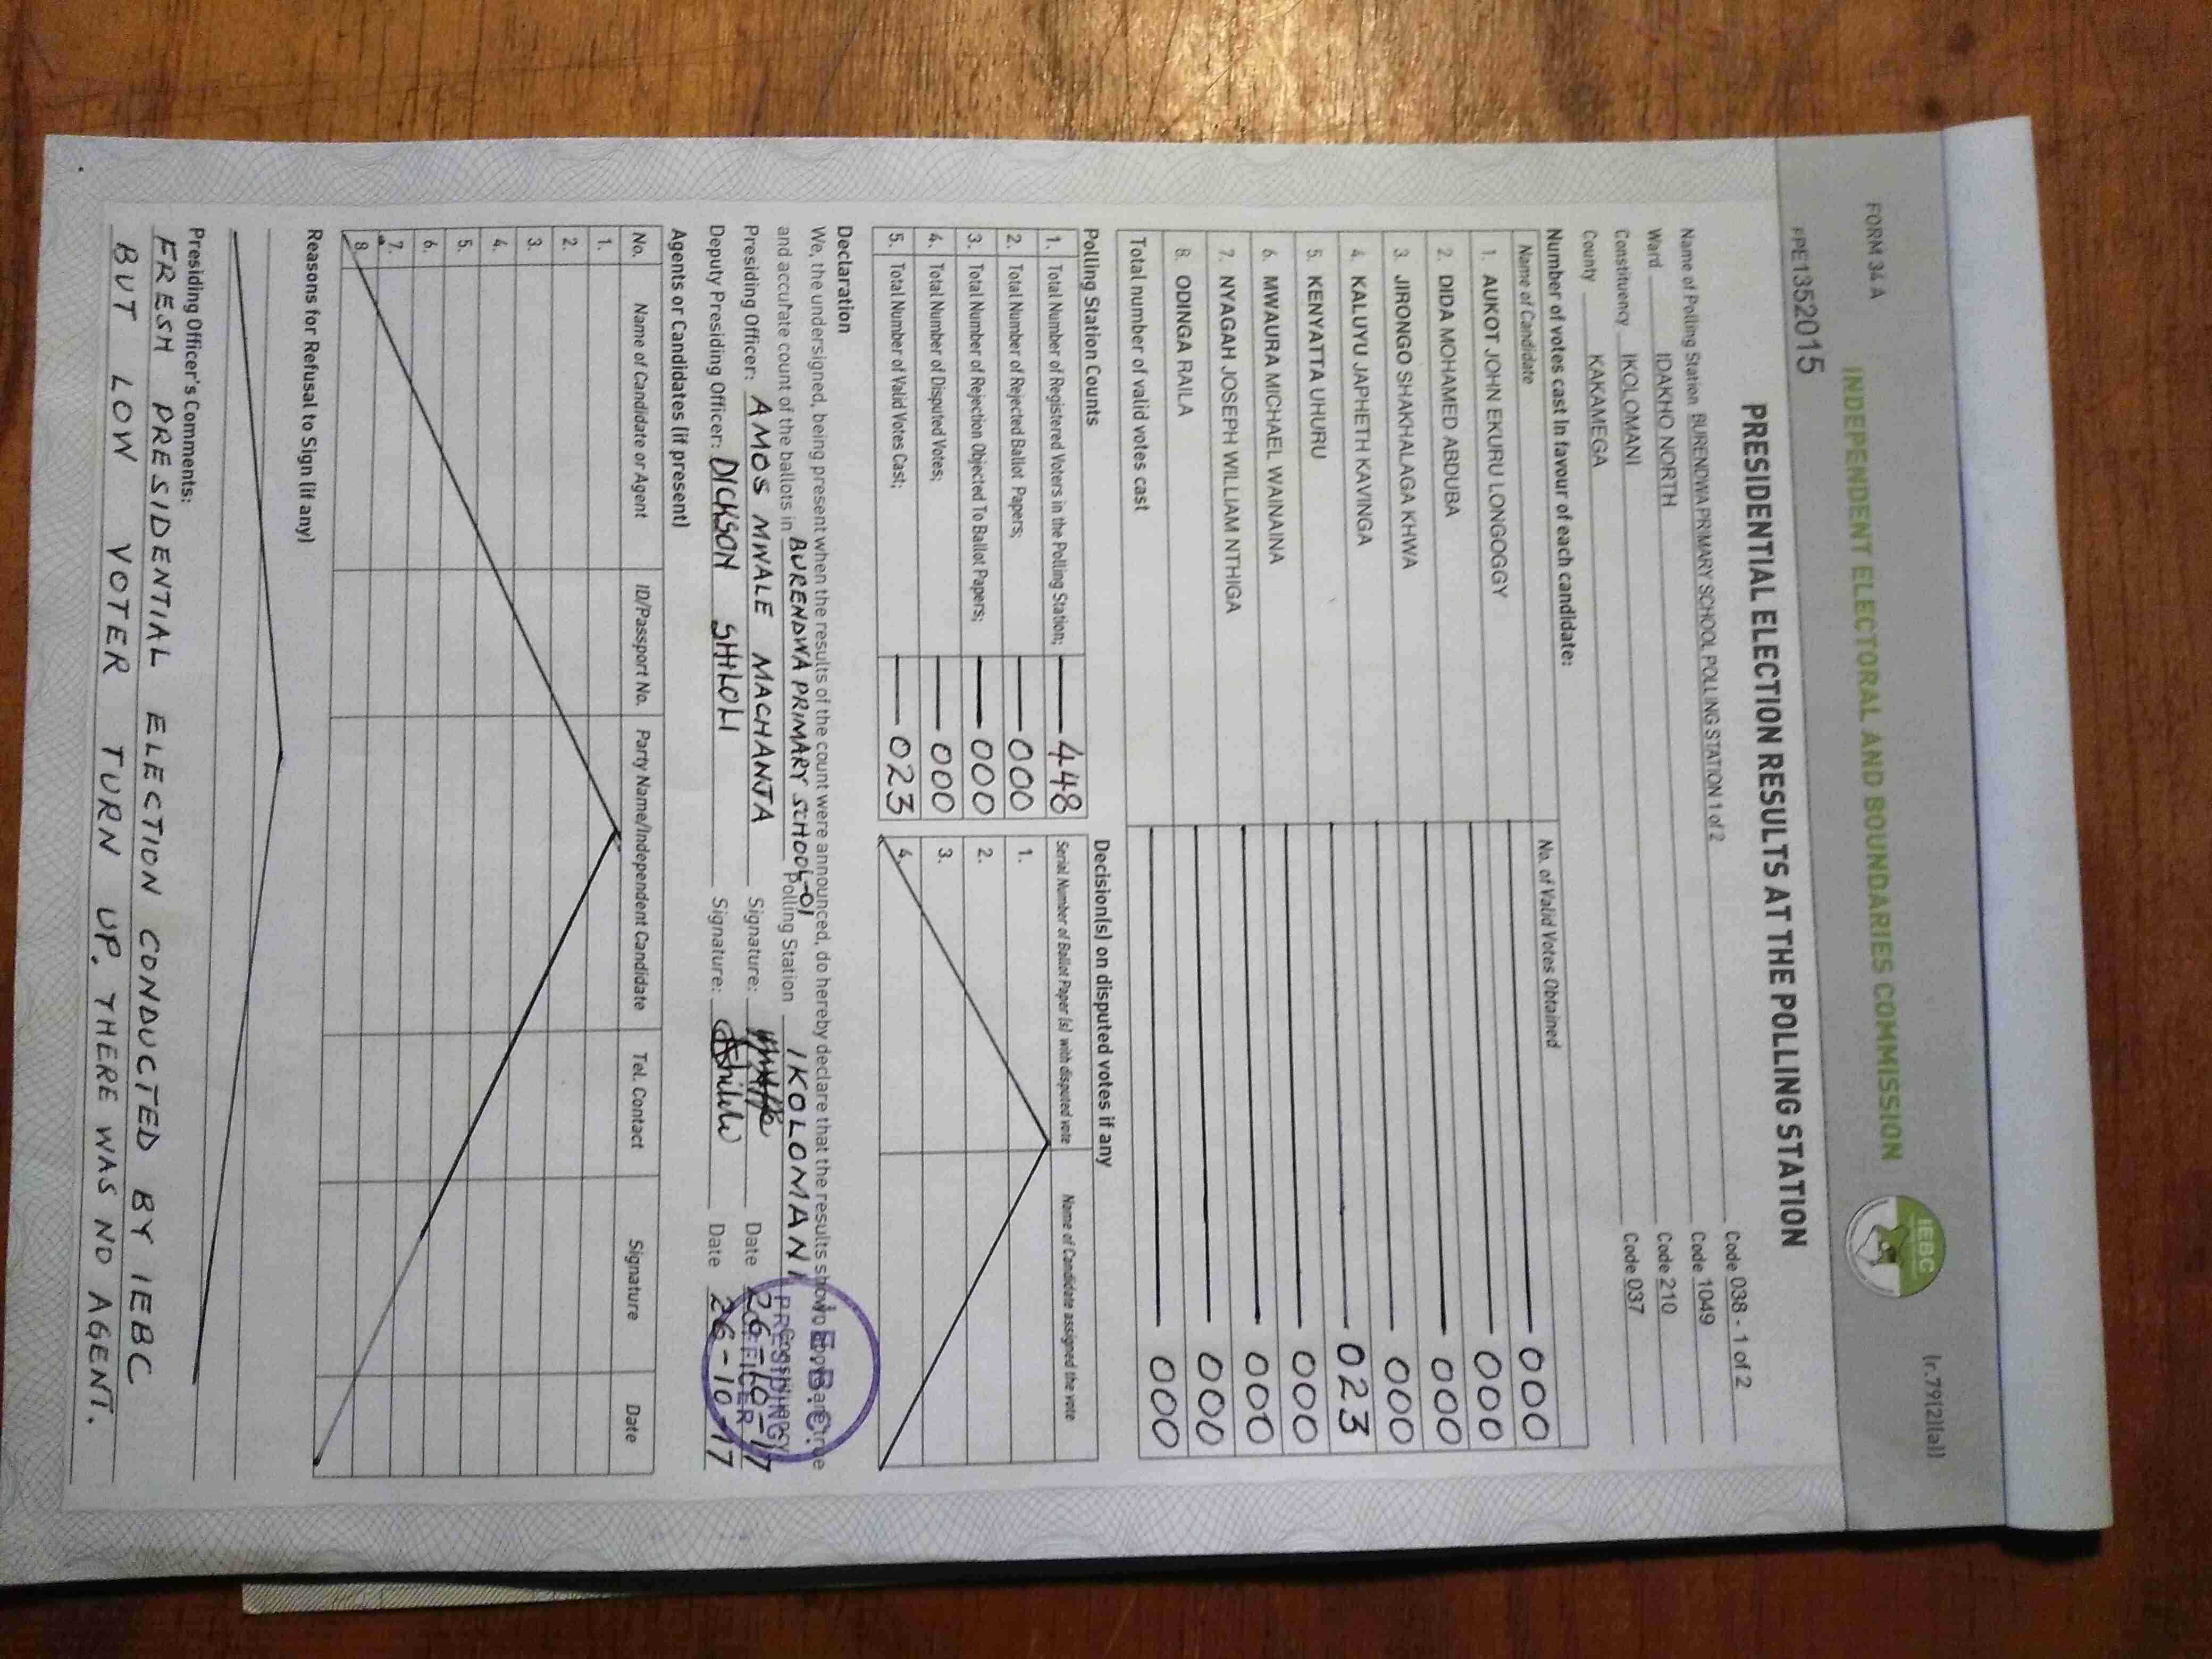 FORM 34 A
(r.79(2)(a))
INDEPENDENT ELECTORAL AND BOUNDARIES COMMISSION
IEBC
FPE1352015
PRESIDENTIAL ELECTION RESULTS AT THE POLLING STATION
Name of Polling Station BURENDWA PRIMARY SCHOOL POLLING STATION 1 of 2 Code 038 - 1 of 2
Ward IDAKHO NORTH Code 1049
Constituency IKOLOMANI Code 210
County KAKAMEGA Code 037
Number of votes cast in favour of each candidate:
Name of Candidate No. of Valid Votes Obtained
1. AUKOT JOHN EKURU LONGOGGY 000
2. DIDA MOHAMED ABDUBA 000
3. JIRONGO SHAKHALAGA KHWA 000
4. KALUYU JAPHETH KAVINGA 000
5. KENYATTA UHURU 023
6. MWAURA MICHAEL WAINAINA 000
7. NYAGAH JOSEPH WILLIAM NTHIGA 000
8. ODINGA RAILA 000
Total number of valid votes cast 000
Polling Station Counts
1. Total Number of Registered Voters in the Polling Station; 448
2. Total Number of Rejected Ballot Papers; 000
3. Total Number of Rejection Objected To Ballot Papers; 000
4. Total Number of Disputed Votes; 000
5. Total Number of Valid Votes Cast; 023
Decision(s) on disputed votes if any
Serial Number of Ballot Paper (s) with disputed vote Name of Candidate assigned the vote
1.
2.
3.
4.
Declaration
We, the undersigned, being present when the results of the count were announced, do hereby declare that the results shown above are true
and accurate count of the ballots in BURENDWA PRIMARY SCHOOL-01 Polling Station IKOLOMANI Constituency
Presiding Officer: AMOS MWALE MACHANJA Signature: Date 26-10-17
Deputy Presiding Officer: DICKSON SHILOLI Signature: Date 26-10-17
I.E.B.C.
PRESIDING
OFFICER
Agents or Candidates (if present)
No. Name of Candidate or Agent ID/Passport No. Party Name/Independent Candidate Tel. Contact Signature Date
1.
2.
3.
4.
5.
6.
7.
8
Reasons for Refusal to Sign (if any)
Presiding Officer's Comments:
FRESH PRESIDENTIAL ELECTION CONDUCTED BY IEBC
BUT LOW VOTER TURN UP. THERE WAS NO AGENT.